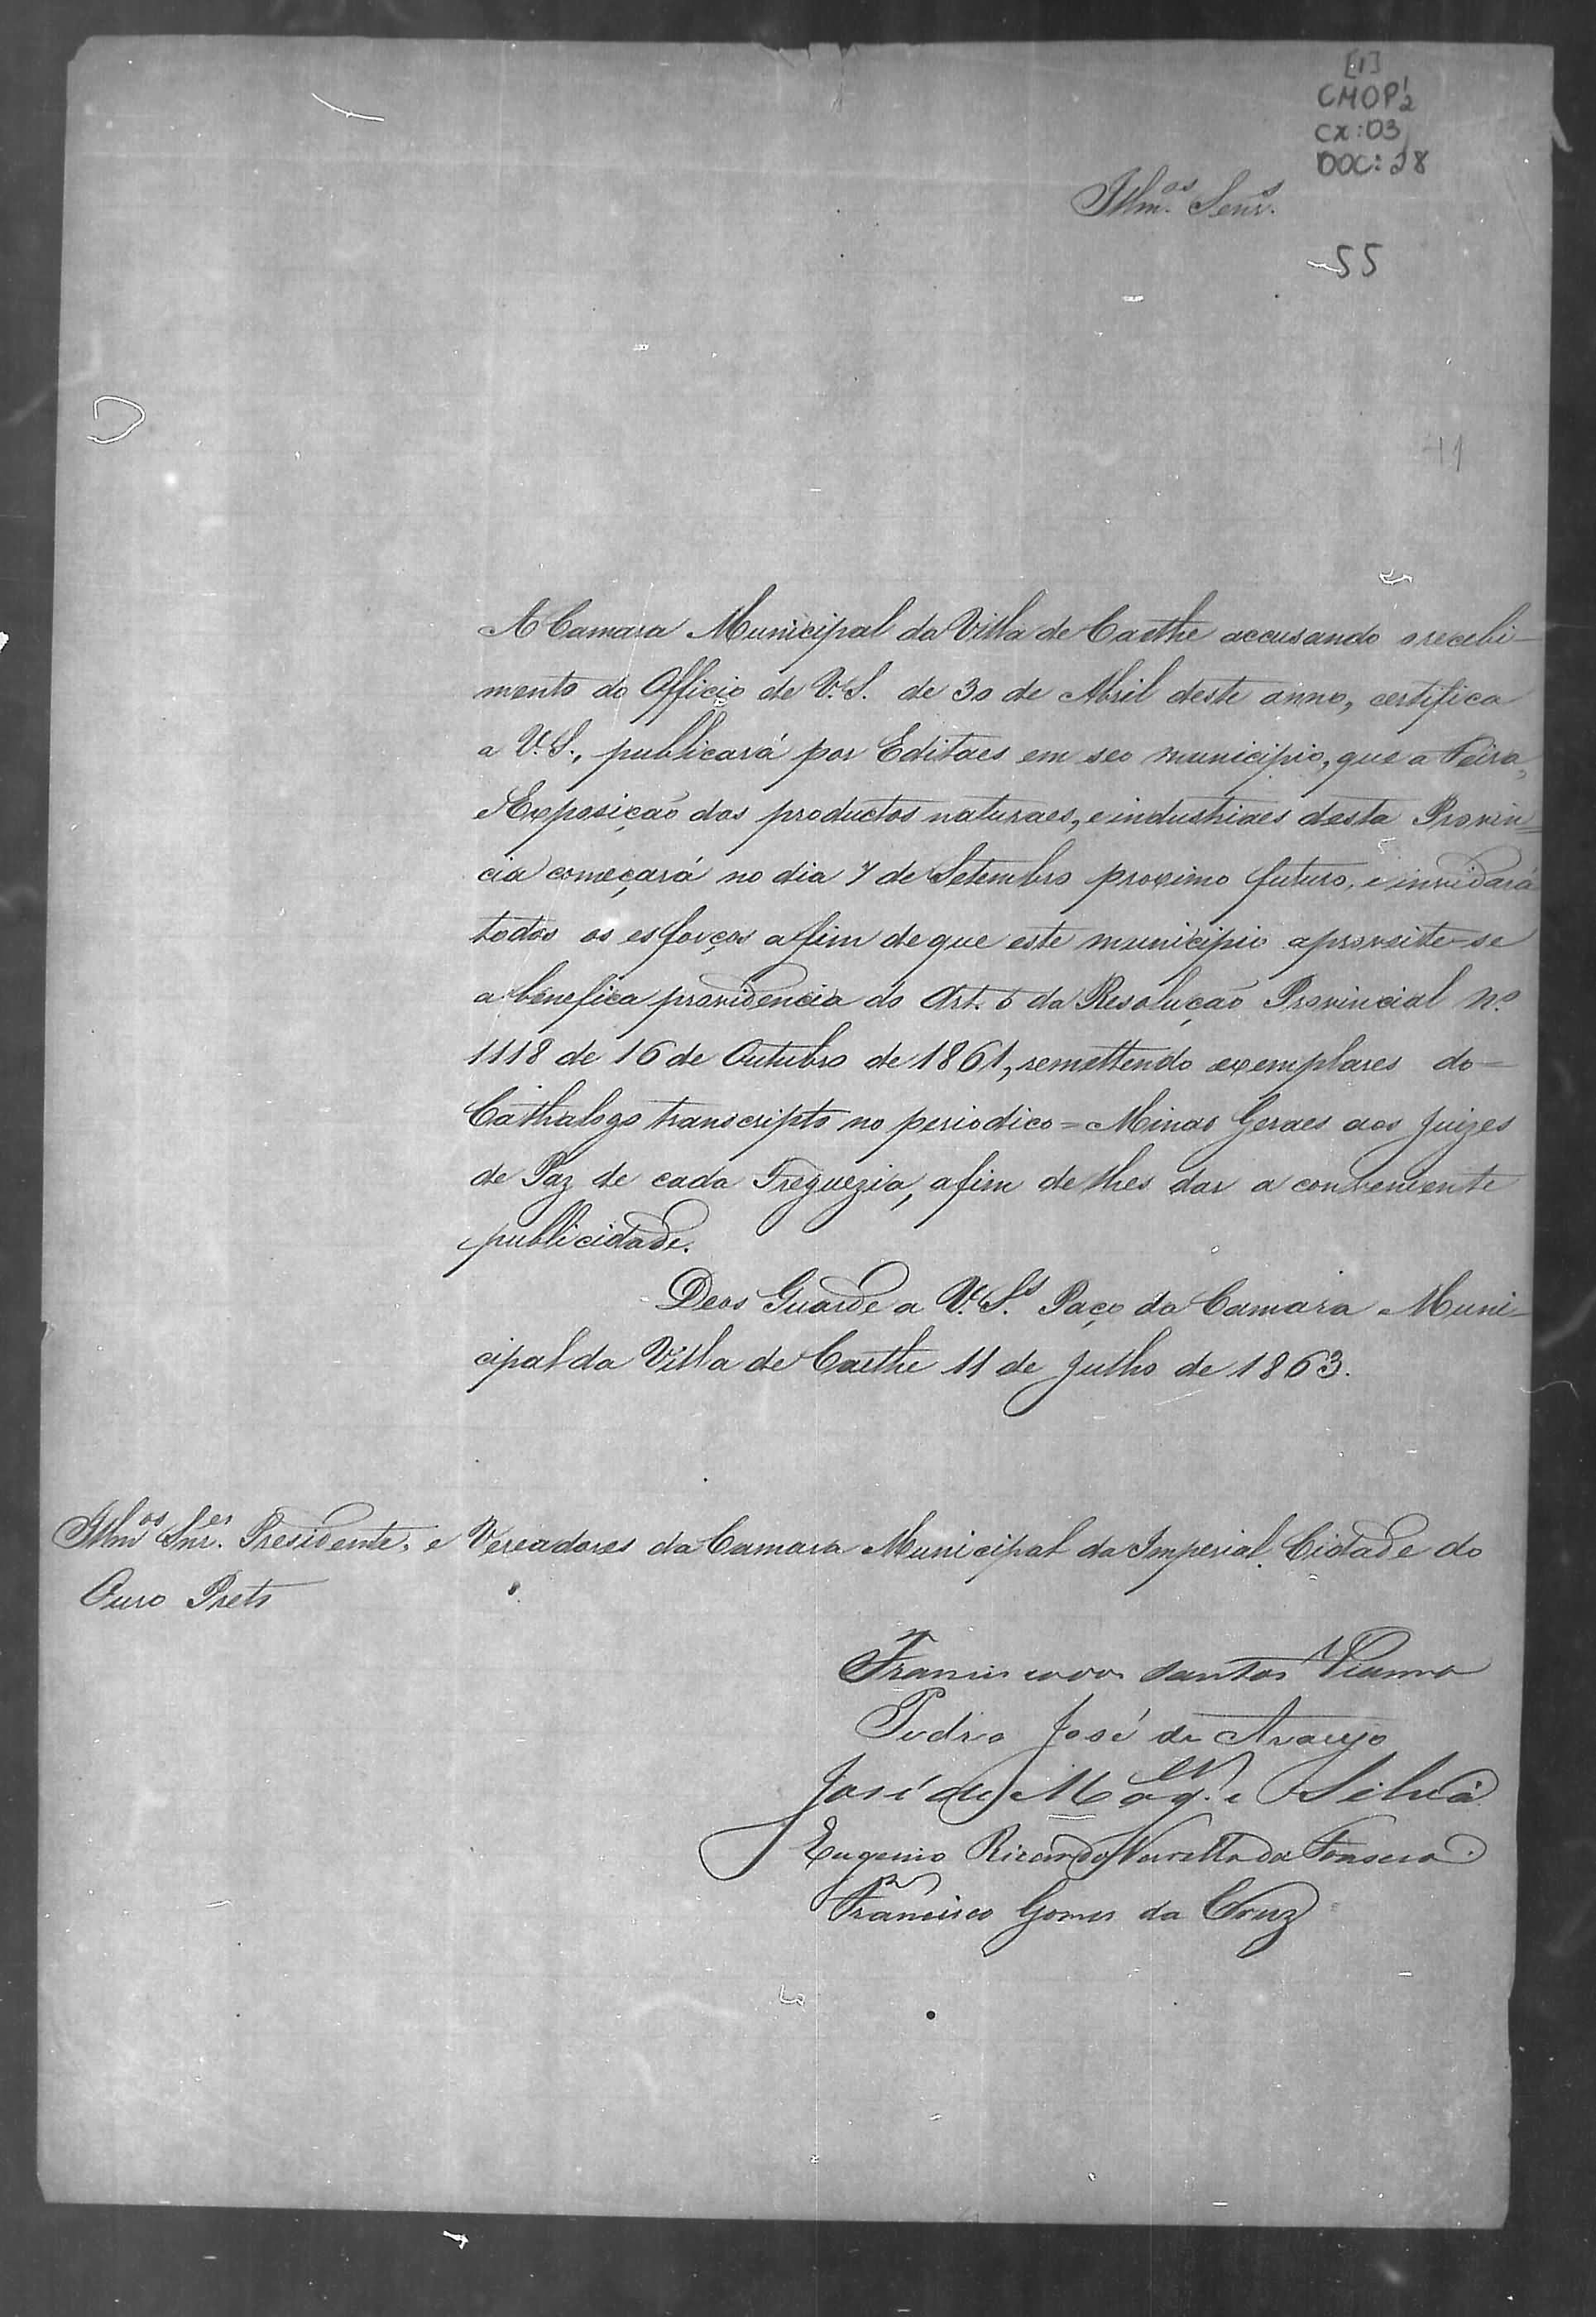 [1]
CMOP 1/2
CX: 03
DOC: 28
Illm.os Senr.s
55
11
A Camara Municipal da Villa de Caethe accusando o recebi-
mento do Officio de V.S. de 30 de Abril deste anno, certifica
a V.S., publicará por Editaes em seo municipio, que a Feira,
Exposição dos productos naturaes, e industriaes desta Provin=
cia começará no dia 7 de Setembro proximo futuro, e invidará
todos os esforços afim de que este municipio aproveite-se
a benefica providencia do Art. 6 da Resolução Provincial N.o
1118 de 16 de Outubro de 1861, remettendo exemplares do=
Cathalogo transcripto no periodico = Minas Geraes aos Juizes
de Paz de cada Freguezia, afim de lhes dar a conveniente
publicidade.
Deos Guarde a V. S.s Paço da Camara Muni-
cipal da Villa de Caethe 11 de Julho de 1863.
Illmos Snr.es Presidente, e Vereadores da Camara Municipal da Imperial Cidade do
Ouro Preto
Francisco dos Santos Vianna
Pedro José de Araujo
José de Mag.es e Silva
Eugenio Ricardo Varella da Fonseca
Francisco Gomes da Cruz